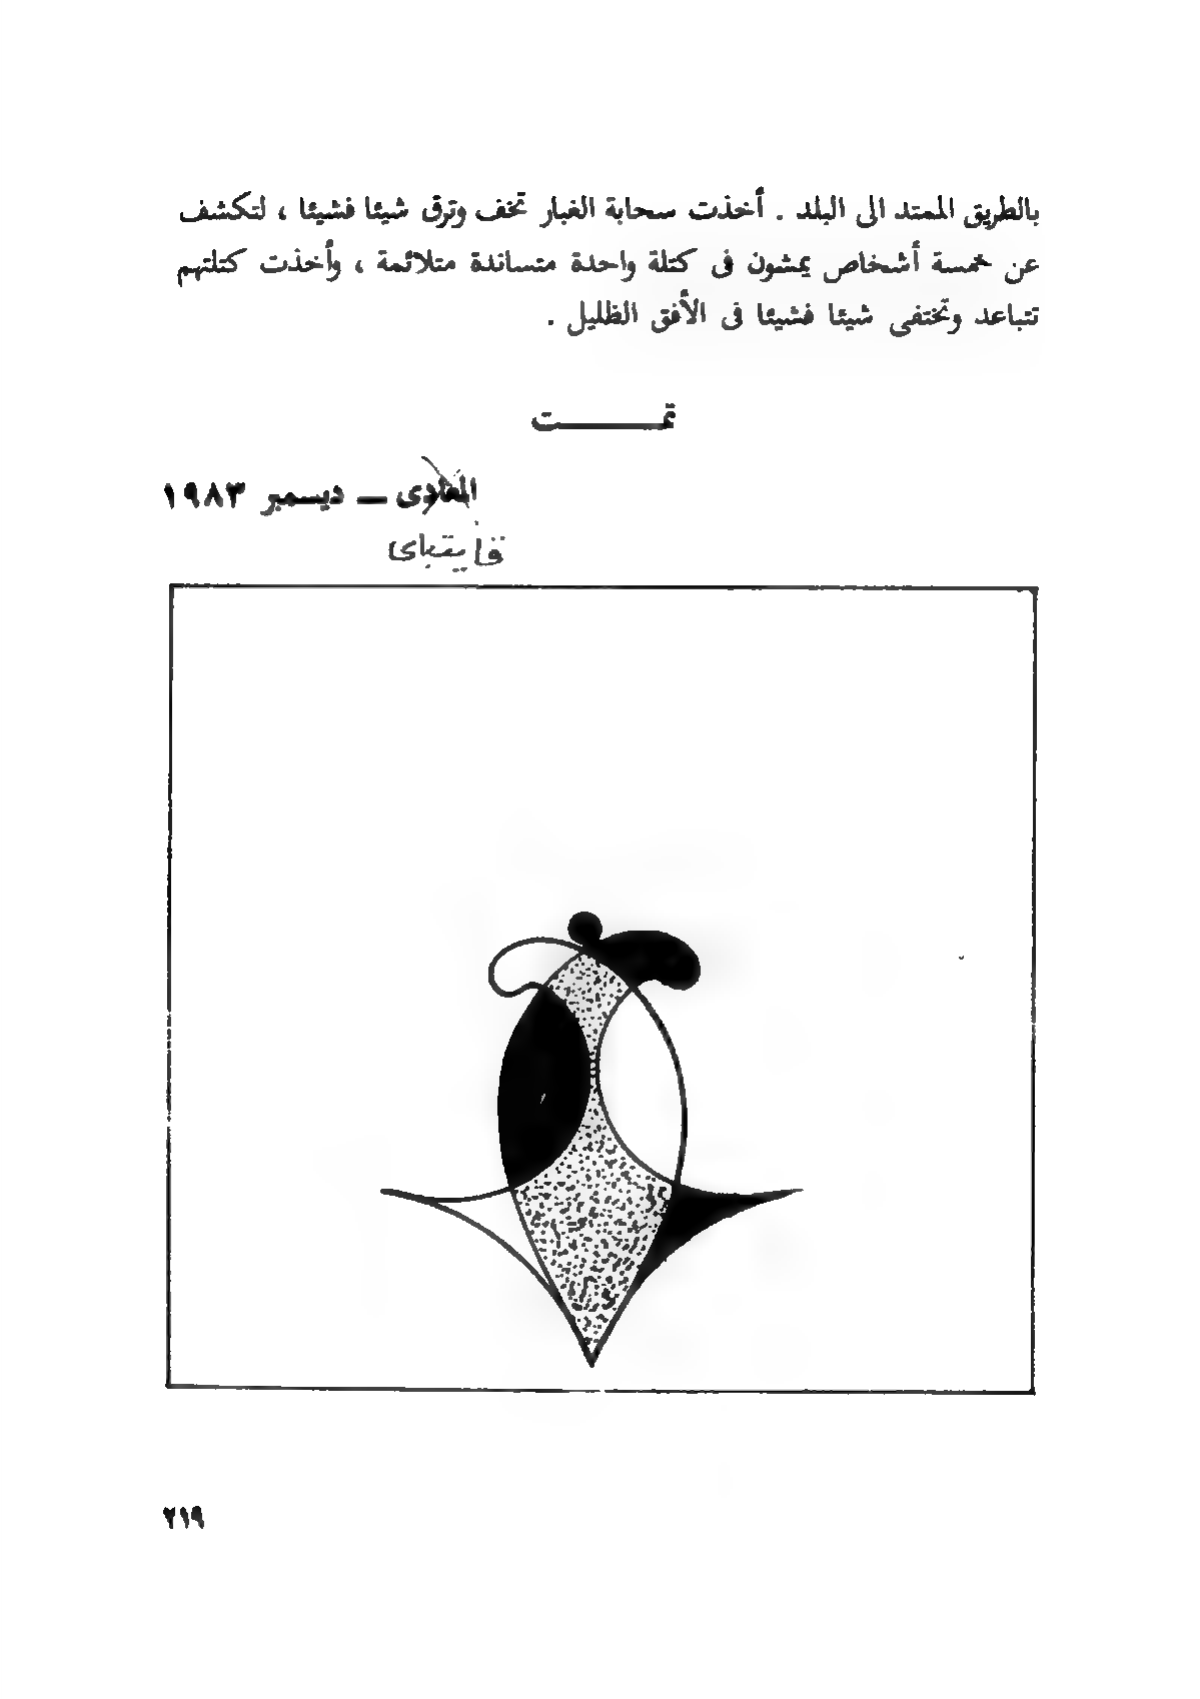 بالطريق الممتد الى البلد . أخذت سحابة الغبار تخف وترق شيئا فشيئا ، لتكشف
عن خمسة أشخاص يمشون فى كتلة واحدة متساندة متلائمة ، وأخذت كتلتهم
تتباعد وتختفى شيئا فشيئا فى الأفق الظليل .
تمــــــــت
المعادى ــ ديسمبر ١٩٨٣
قايتباى
٢١٩